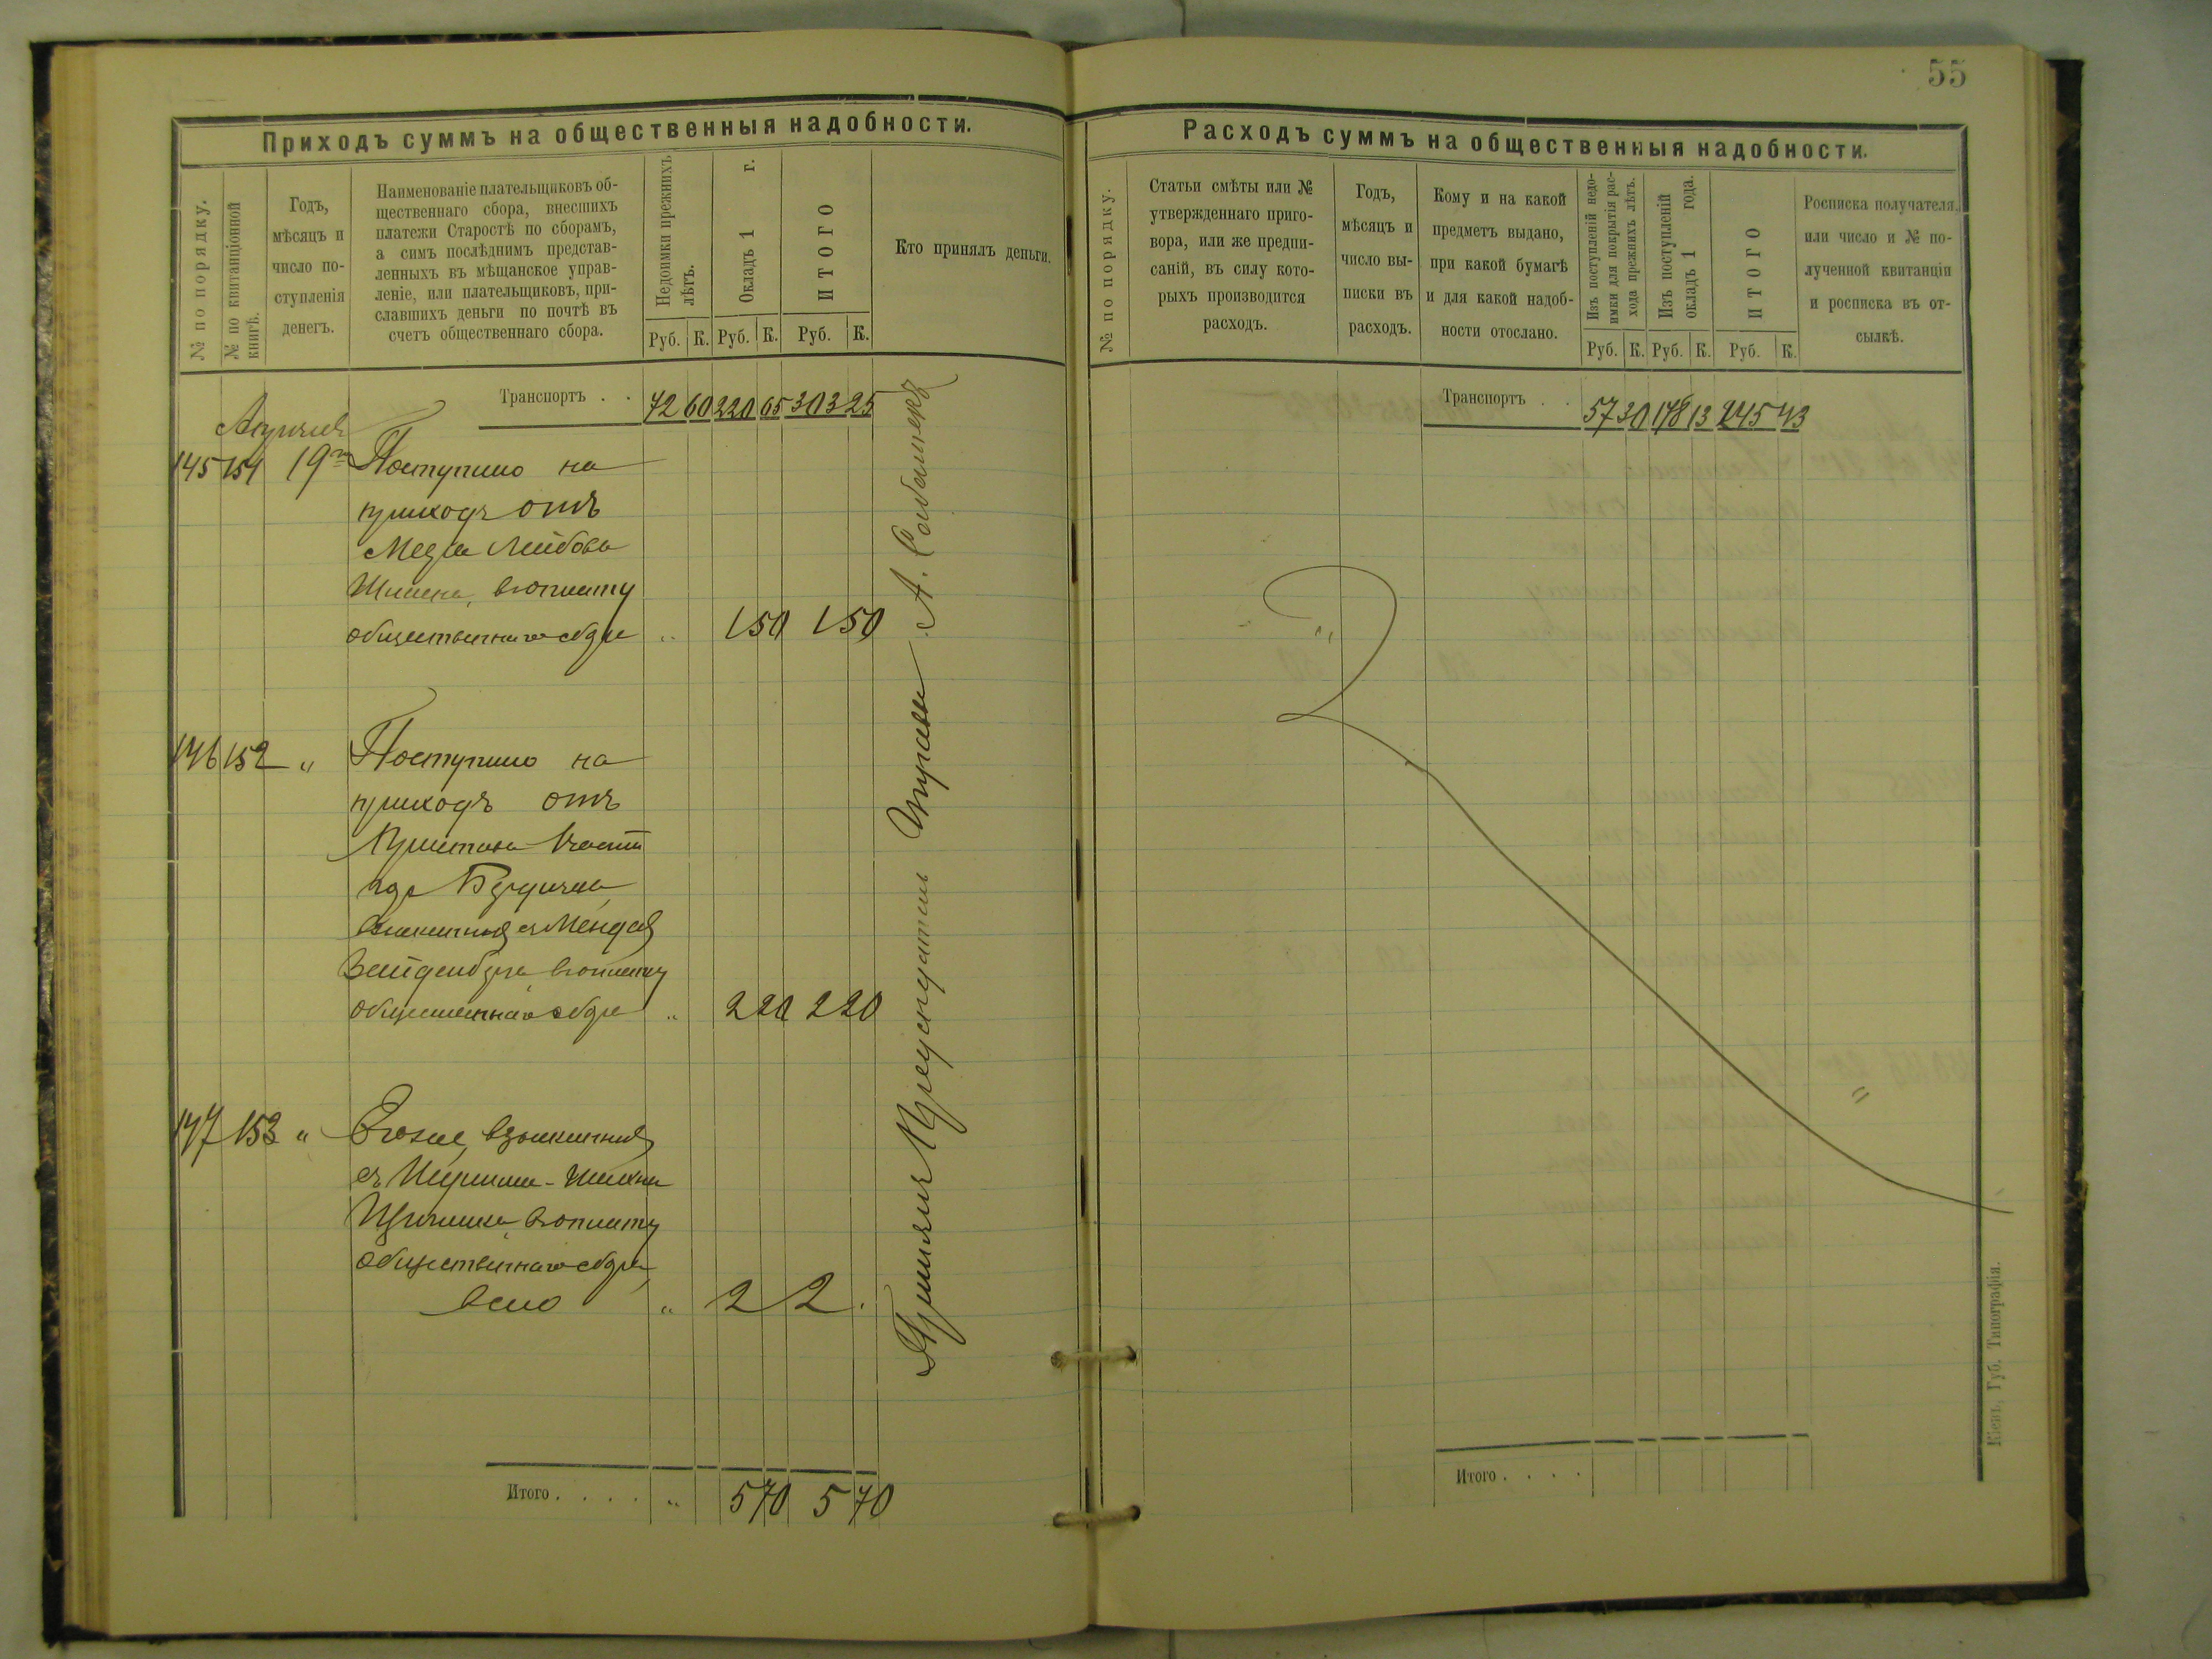 55
Приходъ суммъ на общественныя надобности.
№ по порядку.
№ по квитанціонной
книгѣ.
Годъ,
мѣсяцъ и
число по-
ступленія
денегъ.
Наименованіе плательщиковъ об-
щественнаго сбора, внесшихъ
платежи Старостѣ по сборамъ,
а симъ послѣднимъ представ-
ленныхъ въ мѣщанское управ-
леніе, или плательщиковъ, при-
славшихъ деньги по почтѣ въ
счетъ общественнаго сбора.
Недоимки прежнихъ
лѣтъ.
Окладъ 1 г.
ИТОГО
Кто принялъ деньги.
Руб. К. Руб. К. Руб. К.
Транспортъ . . 72 60 220 65 303 25
Апрѣля
145 151 19го Поступило на
приходъ отъ
Лейбова
въ уплату
общественнаго сбора " 1 50 1 50
146 152 " Поступило на
приходъ отъ
Пристава части
гор Бердичева
съ Менделя
Зейденберга въ уплату
общественнаго сбора " 2 20 2 20
147 153 " Его же, взысканныя
съ
въ уплату
общественнаго сбора
всего " 2 2 .
Итого . . . . " 5 70 5 70
Принялъ Предсѣдатель Управы А.
Расходъ суммъ на общественныя надобности.
№ по порядку.
Статьи смѣты или №
утвержденнаго приго-
вора, или же предпи-
саній, въ силу кото-
рыхъ производится
расходъ.
Годъ,
мѣсяцъ и
число вы-
писки въ
расходъ.
Кому и на какой
предметъ выдано,
при какой бумагѣ
и для какой надоб-
ности отослано.
Изъ поступленій недо-
имки для покрытія рас-
хода прежнихъ лѣтъ.
Изъ поступленій
окладъ 1 года.
ИТОГО
Росписка получателя,
или число и № по-
лученной квитанціи
и росписка въ от-
сылкѣ.
Руб. К. Руб. К. Руб. К.
Транспортъ . . 57 30 178 13 245 43
Итого . . . .
Кіевъ, Губ. Типографія.